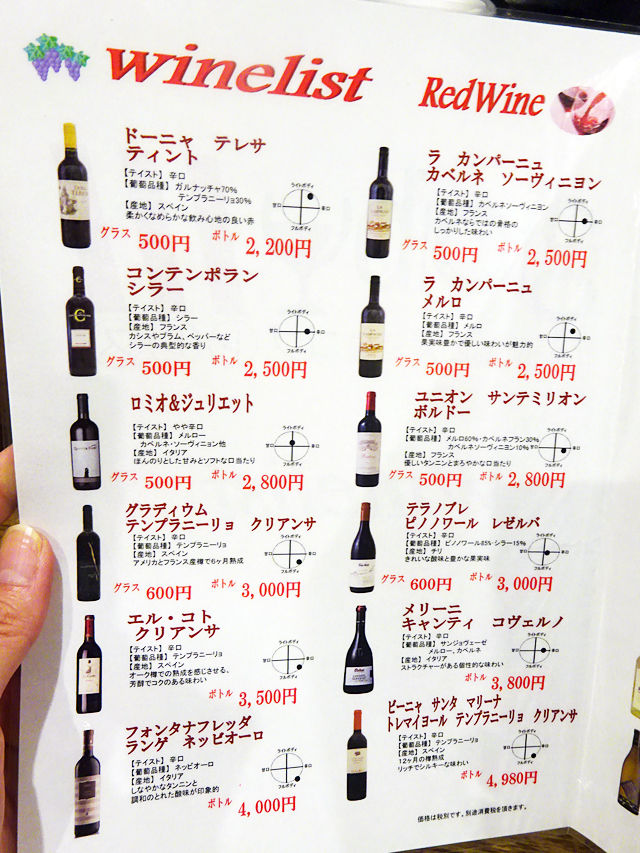 winelist
RedWine
ドーニャ テレサ
ティント
【テイスト】辛口
【葡萄品種】ガルナッチャ70%
テンプラニーリョ30%
【産地】スペイン
柔かくなめらかな飲み心地の良い赤
ライトボディ
甘口
辛口
フルボディ
グラス 500円 ボトル 2,200円
コンテンポラン
シラー
【テイスト】辛口
【葡萄品種】シラー
【産地】フランス
カシスやプラム、ペッパーなど
シラーの典型的な香り
ライトボディ
甘口
辛口
フルボディ
グラス 500円 ボトル 2,500円
ロミオ&ジュリエット
【テイスト】やや辛口
【葡萄品種】メルロー
カベルネ・ソーヴィニヨン他
【産地】イタリア
ほんのりとした甘みとソフトな口当たり
ライトボディ
甘口
辛口
フルボディ
グラス 500円 ボトル 2,800円
グラディウム
テンプラニーリョ クリアンサ
【テイスト】辛口
【葡萄品種】テンプラニーリョ
【産地】スペイン
アメリカとフランス産樽で6ヶ月熟成
ライトボディ
甘口
辛口
フルボディ
グラス 600円 ボトル 3,000円
エル・コト
クリアンサ
【テイスト】辛口
【葡萄品種】テンプラニーリョ
【産地】スペイン
オーク樽での熟成を感じさせる、
芳醇でコクのある味わい
ライトボディ
甘口
辛口
フルボディ
ボトル 3,500円
フォンタナフレッダ
ランゲ ネッビオーロ
【テイスト】辛口
【葡萄品種】ネッビオーロ
【産地】イタリア
しなやかなタンニンと
調和のとれた酸味が印象的
ライトボディ
甘口
辛口
フルボディ
ボトル 4,000円
ラ カンパーニュ
カベルネ ソーヴィニヨン
【テイスト】辛口
【葡萄品種】カベルネソーヴィニヨン
【産地】フランス
カベルネならではの骨格の
しっかりした味わい
ライトボディ
甘口
辛口
フルボディ
グラス 500円 ボトル 2,500円
ラ カンパーニュ
メルロ
【テイスト】辛口
【葡萄品種】メルロ
【産地】フランス
果実味豊かで優しい味わいが魅力的
ライトボディ
甘口
辛口
フルボディ
グラス 500円 ボトル 2,500円
ユニオン サンテミリオン
ボルドー
【テイスト】辛口
【葡萄品種】メルロ60%・カベルネフラン30%
カベルネソーヴィニヨン10%
【産地】フランス
優しいタンニンとまろやかな口当たり
ライトボディ
甘口
辛口
フルボディ
グラス 500円 ボトル 2,800円
テラノブレ
ピノノワール レゼルバ
【テイスト】辛口
【葡萄品種】ピノノワール85%・シラー15%
【産地】チリ
きれいな酸味と豊かな果実味
ライトボディ
甘口
辛口
フルボディ
グラス 600円 ボトル 3,000円
メリーニ
キャンティ コヴェルノ
【テイスト】辛口
【葡萄品種】サンジョヴェーゼ
メルロー、カベルネ
【産地】イタリア
ストラクチャーがある個性的な味わい
ライトボディ
甘口
辛口
フルボディ
ボトル 3,800円
ビーニャ サンタ マリーナ
トレマイヨール テンプラニーリョ クリアンサ
【テイスト】辛口
【葡萄品種】テンプラニーリョ
【産地】スペイン
12ヶ月の樽熟成
リッチでシルキーな味わい
ライトボディ
甘口
辛口
フルボディ
ボトル 4,980円
価格は税別です。別途消費税を頂きます。